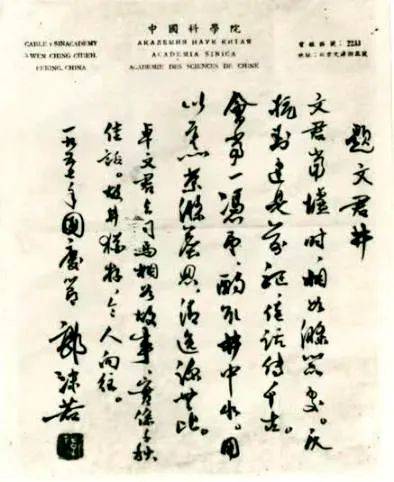 中國科學院
АКАДЕМИЯ НАУК КИТАЯ
ACADEMIA SINICA
ACADEMIE DES SCIENCES DE CHINE
CABLE: SINACADEMY
3 WEN CHING CHIEH,
PEKING, CHINA
電報掛號:
地址:北京文津街三號
題文君井
文君當壚時,相如滌器處。反
抗封建是前驅,佳話傳千古。
會當一憑弔,酌取井中水。用
以烹茶滌塵思,清逸涼無比。
卓文君与司馬相如故事,實係千秋
佳話。故井猶存,令人向往。
一九五七年國慶節 郭沫若